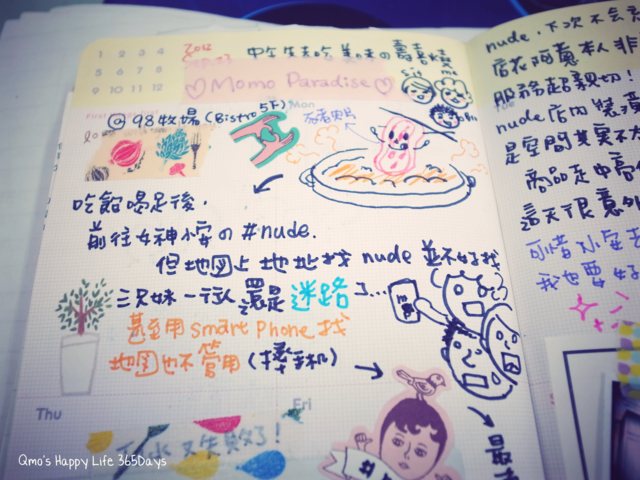 1 2 3 4
5 6 7 8
9 10 11 12
2012
中午先去吃美味の壽喜燒
♡Momo Paradise♡
sis
me
Mon
@98牧場(Bistro 5F)
吃飽喝足後,
前往女神小安の#nude.
但地圖上地址找 nude 並不好找
三兄妹一行人還是迷路了...
甚至用smart phone 找
地圖也不管用(摔手机)
Thu
Fri
又失敗了!
最
nude,下次不會
店花阿嬤本人非
服務超親切!
nude店內裝潢
是空間其實不
商品走中高
這天很意外
可惜小
我也要好
Qmo's Happy Life 365Days